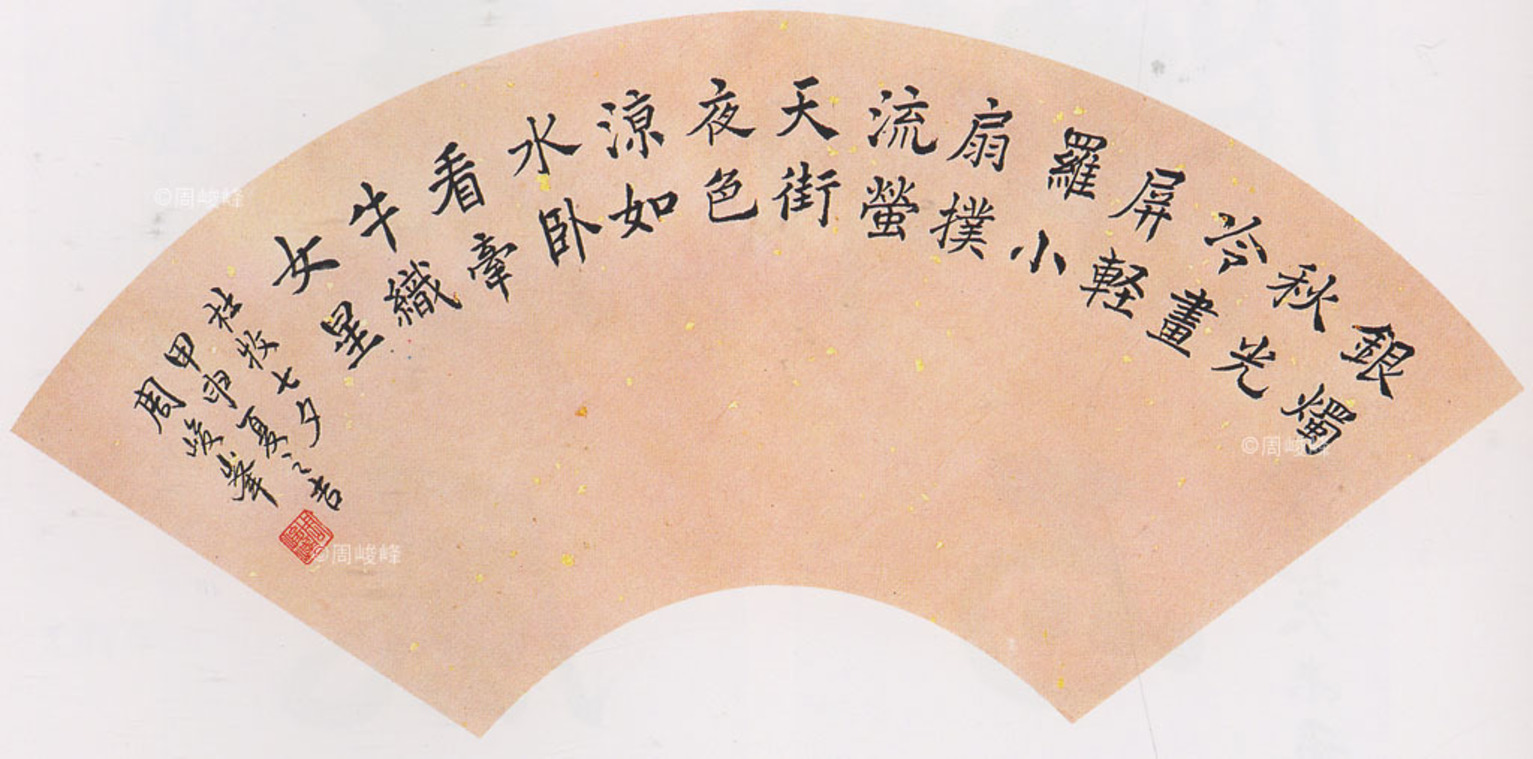 銀燭
秋光
冷畫
屏軽
羅小
扇撲
流螢
天街
夜色
涼如
水卧
看牽
牛織
女星
杜牧七夕
甲申夏之吉
周峻峯
©周峻峰
©周峻峰
©周峻峰